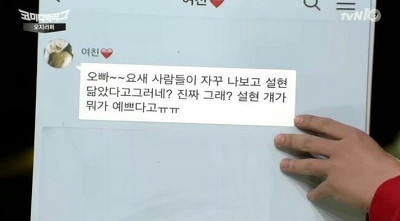 코미디빅리그
오지라퍼
tvN10
여친❤
여친❤
오빠~~요새 사람들이 자꾸 나보고 설현
닮았다고그러네? 진짜 그래? 설현 걔가
뭐가 예쁘다고ㅠㅠ